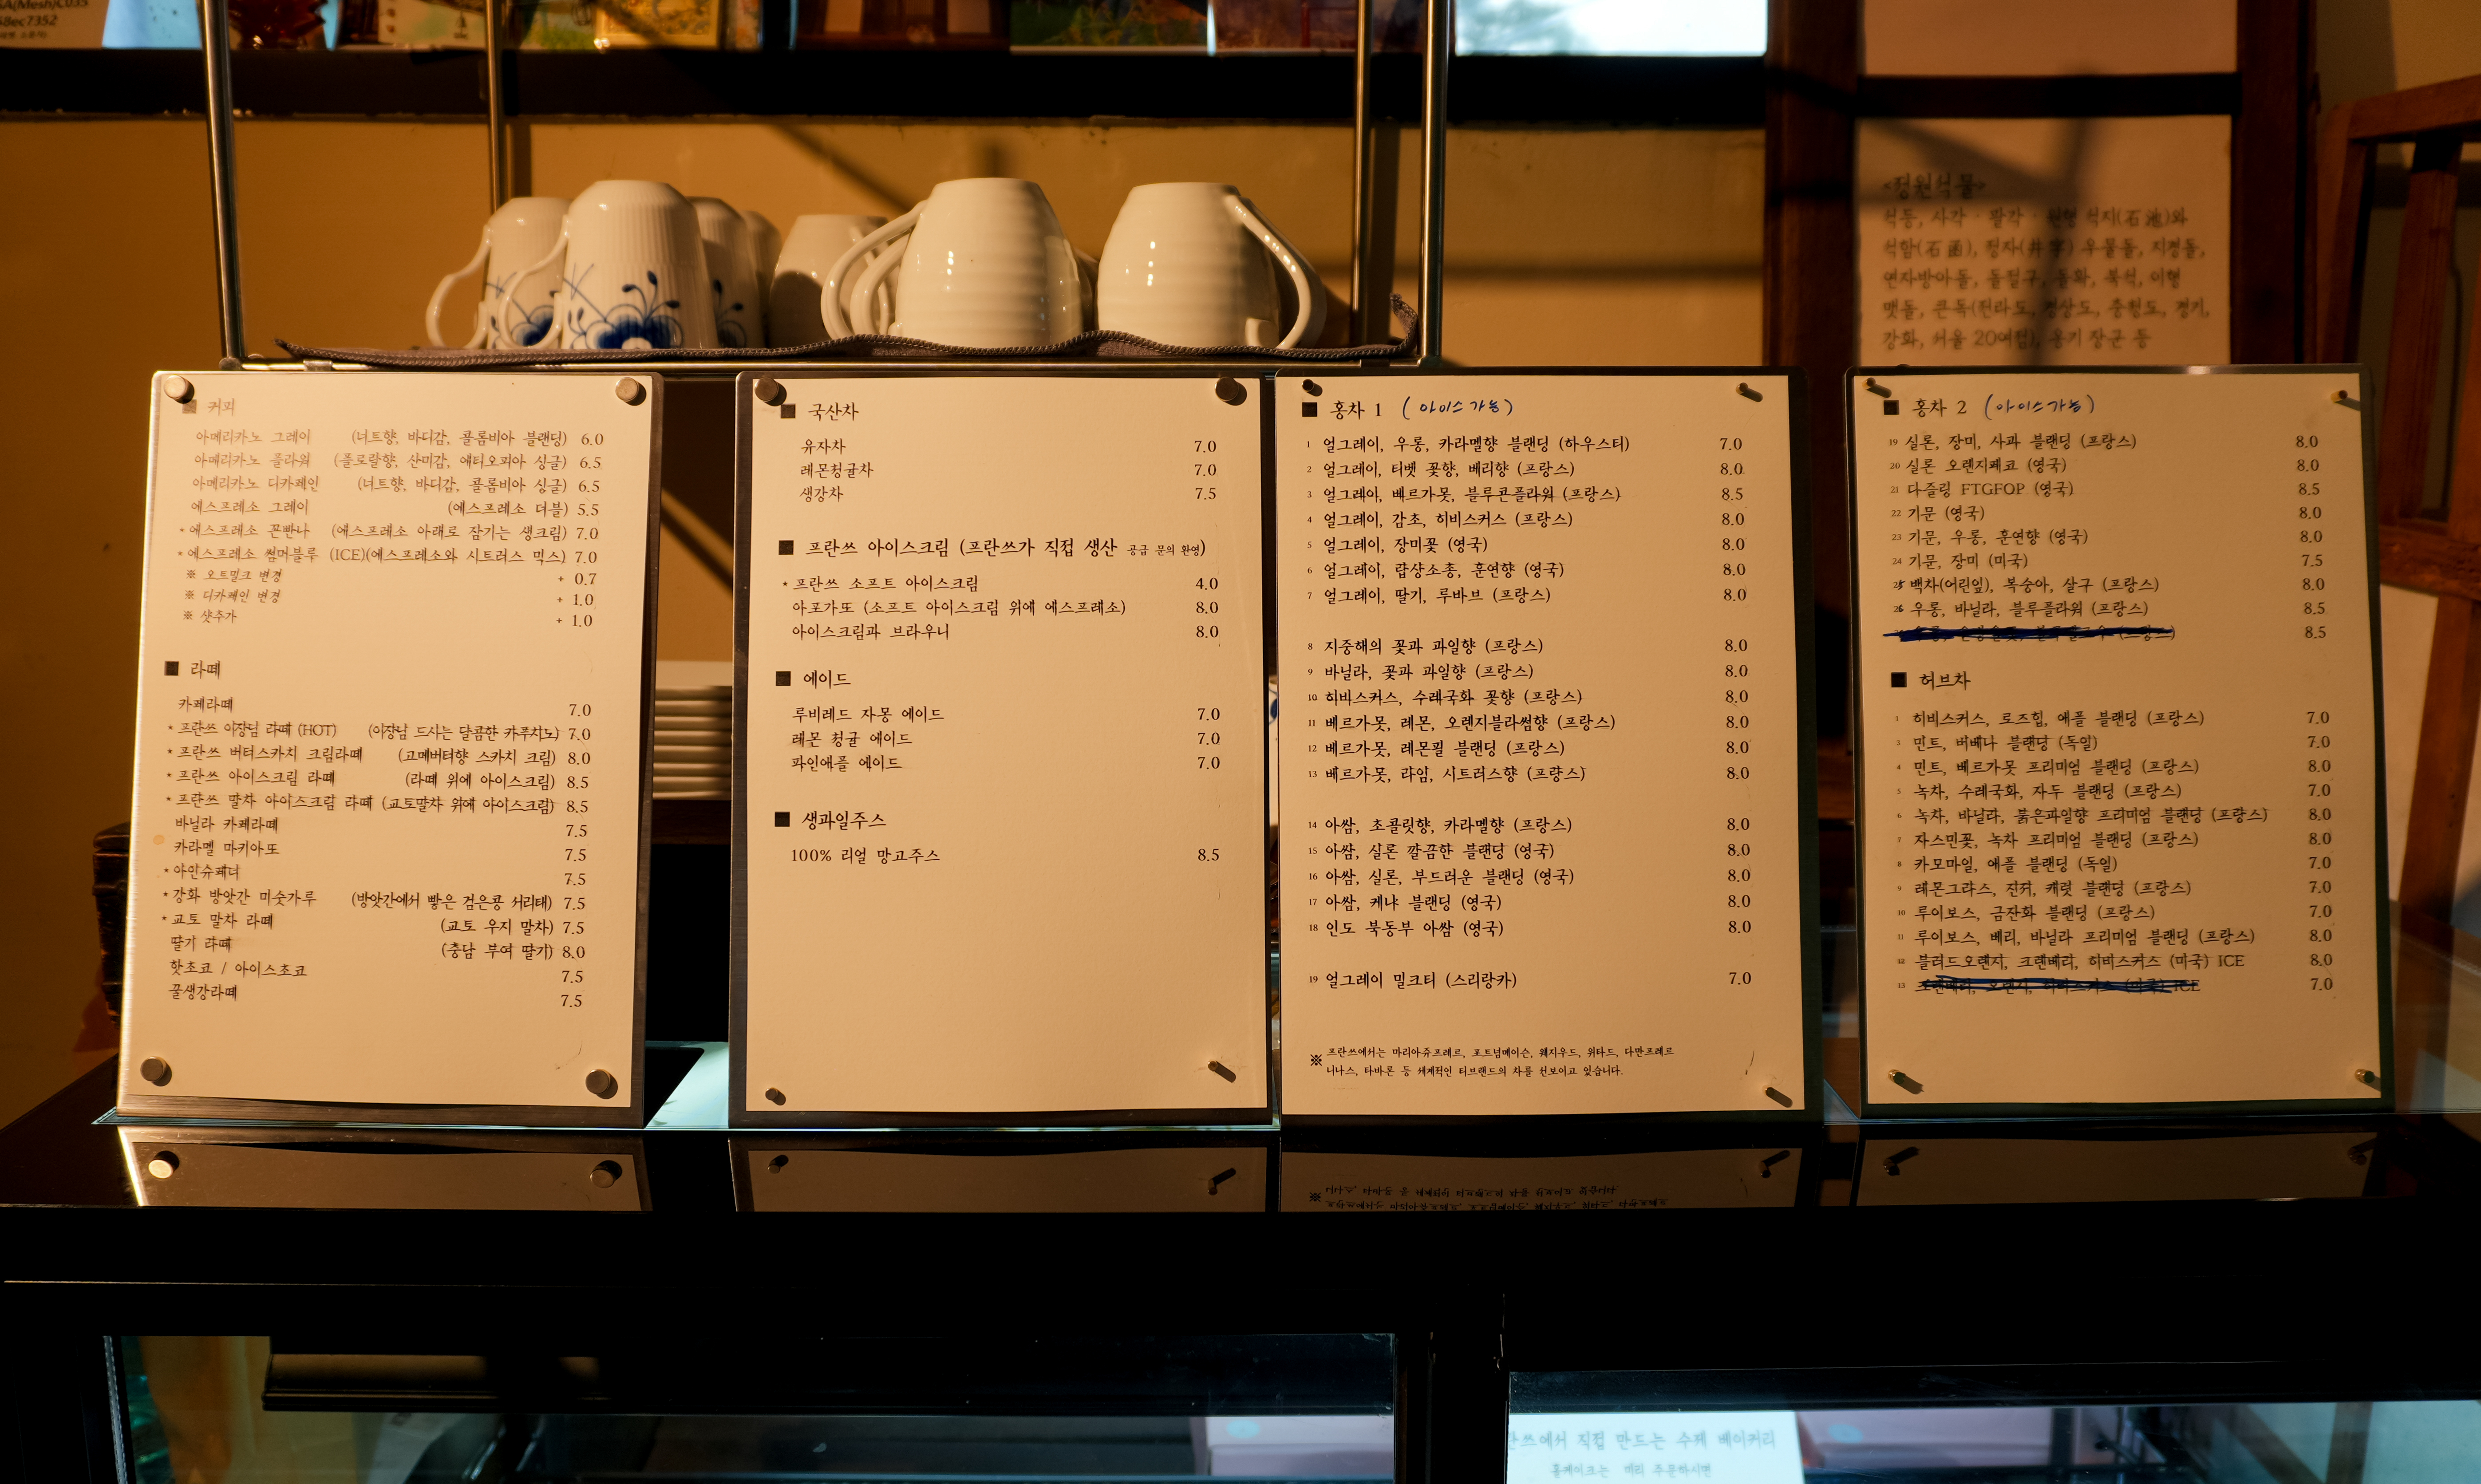 SA(Mesh)C035
58ec7352
<정원석물>
석등, 사각 · 팔각 · 원형 석지(石池)와
석함(石函), 정자(井字) 우물돌, 지경돌,
연자방아돌, 돌절구, 돌확, 북석, 이형
맷돌, 큰독(전라도, 경상도, 충청도, 경기,
강화, 서울 20여점), 옹기 장군 등
■ 커피
아메리카노 그레이 (너트향, 바디감, 콜롬비아 블랜딩) 6.0
아메리카노 플라워 (플로랄향, 산미감, 에티오피아 싱글) 6.5
아메리카노 디카페인 (너트향, 바디감, 콜롬비아 싱글) 6.5
에스프레소 그레이 (에스프레소 더블) 5.5
* 에스프레소 꼰빤나 (에스프레소 아래로 잠기는 생크림) 7.0
* 에스프레소 썸머블루 (ICE)(에스프레소와 시트러스 믹스) 7.0
※ 오트밀크 변경 + 0.7
※ 디카페인 변경 + 1.0
※ 샷추가 + 1.0
■ 라떼
카페라떼 7.0
* 프란쓰 이장님 라떼 (HOT) (이장님 드시는 달콤한 카푸치노) 7.0
* 프란쓰 버터스카치 크림라떼 (고메버터향 스카치 크림) 8.0
* 프란쓰 아이스크림 라떼 (라떼 위에 아이스크림) 8.5
* 프란쓰 말차 아이스크림 라떼 (교토말차 위에 아이스크림) 8.5
바닐라 카페라떼 7.5
카라멜 마키아또 7.5
* 아인슈페너 7.5
* 강화 방앗간 미숫가루 (방앗간에서 빻은 검은콩 서리태) 7.5
* 교토 말차 라떼 (교토 우지 말차) 7.5
딸기 라떼 (충남 부여 딸기) 8.0
핫초코 / 아이스초코 7.5
꿀생강라떼 7.5
■ 국산차
유자차 7.0
레몬청귤차 7.0
생강차 7.5
■ 프란쓰 아이스크림 (프란쓰가 직접 생산 공급 문의 환영)
* 프란쓰 소프트 아이스크림 4.0
아포가또 (소프트 아이스크림 위에 에스프레소) 8.0
아이스크림과 브라우니 8.0
■ 에이드
루비레드 자몽 에이드 7.0
레몬 청귤 에이드 7.0
파인애플 에이드 7.0
■ 생과일주스
100% 리얼 망고주스 8.5
■ 홍차 1 (아이스가능)
1 얼그레이, 우롱, 카라멜향 블랜딩 (하우스티) 7.0
2 얼그레이, 티벳 꽃향, 베리향 (프랑스) 8.0
3 얼그레이, 베르가못, 블루콘플라워 (프랑스) 8.5
4 얼그레이, 감초, 히비스커스 (프랑스) 8.0
5 얼그레이, 장미꽃 (영국) 8.0
6 얼그레이, 랍상소총, 훈연향 (영국) 8.0
7 얼그레이, 딸기, 루바브 (프랑스) 8.0
8 지중해의 꽃과 과일향 (프랑스) 8.0
9 바닐라, 꽃과 과일향 (프랑스) 8.0
10 히비스커스, 수레국화 꽃향 (프랑스) 8.0
11 베르가못, 레몬, 오렌지블라썸향 (프랑스) 8.0
12 베르가못, 레몬필 블랜딩 (프랑스) 8.0
13 베르가못, 라임, 시트러스향 (프랑스) 8.0
14 아쌈, 초콜릿향, 카라멜향 (프랑스) 8.0
15 아쌈, 실론 깔끔한 블랜딩 (영국) 8.0
16 아쌈, 실론, 부드러운 블랜딩 (영국) 8.0
17 아쌈, 케냐 블랜딩 (영국) 8.0
18 인도 북동부 아쌈 (영국) 8.0
19 얼그레이 밀크티 (스리랑카) 7.0
※ 프란쓰에서는 마리아쥬프레르, 포트넘메이슨, 웨지우드, 위타드, 다만프레르
니나스, 타바론 등 세계적인 티브랜드의 차를 선보이고 있습니다.
■ 홍차 2 (아이스가능)
19 실론, 장미, 사과 블랜딩 (프랑스) 8.0
20 실론 오렌지페코 (영국) 8.0
21 다즐링 FTGFOP (영국) 8.5
22 기문 (영국) 8.0
23 기문, 우롱, 훈연향 (영국) 8.0
24 기문, 장미 (미국) 7.5
25 백차(어린잎), 복숭아, 살구 (프랑스) 8.0
26 우롱, 바닐라, 블루플라워 (프랑스) 8.5
8.5
■ 허브차
1 히비스커스, 로즈힙, 애플 블랜딩 (프랑스) 7.0
3 민트, 버베나 블랜딩 (독일) 7.0
4 민트, 베르가못 프리미엄 블랜딩 (프랑스) 8.0
5 녹차, 수레국화, 자두 블랜딩 (프랑스) 7.0
6 녹차, 바닐라, 붉은과일향 프리미엄 블랜딩 (프랑스) 8.0
7 자스민꽃, 녹차 프리미엄 블랜딩 (프랑스) 8.0
8 카모마일, 애플 블랜딩 (독일) 7.0
9 레몬그라스, 진저, 캐럿 블랜딩 (프랑스) 7.0
10 루이보스, 금잔화 블랜딩 (프랑스) 7.0
11 루이보스, 베리, 바닐라 프리미엄 블랜딩 (프랑스) 8.0
12 블러드오렌지, 크랜베리, 히비스커스 (미국) ICE 8.0
13 크랜베리, 오렌지, 히비스커스 (미국) ICE 7.0
란쓰에서 직접 만드는 수제 베이커리
홀케이크는 미리 주문하시면